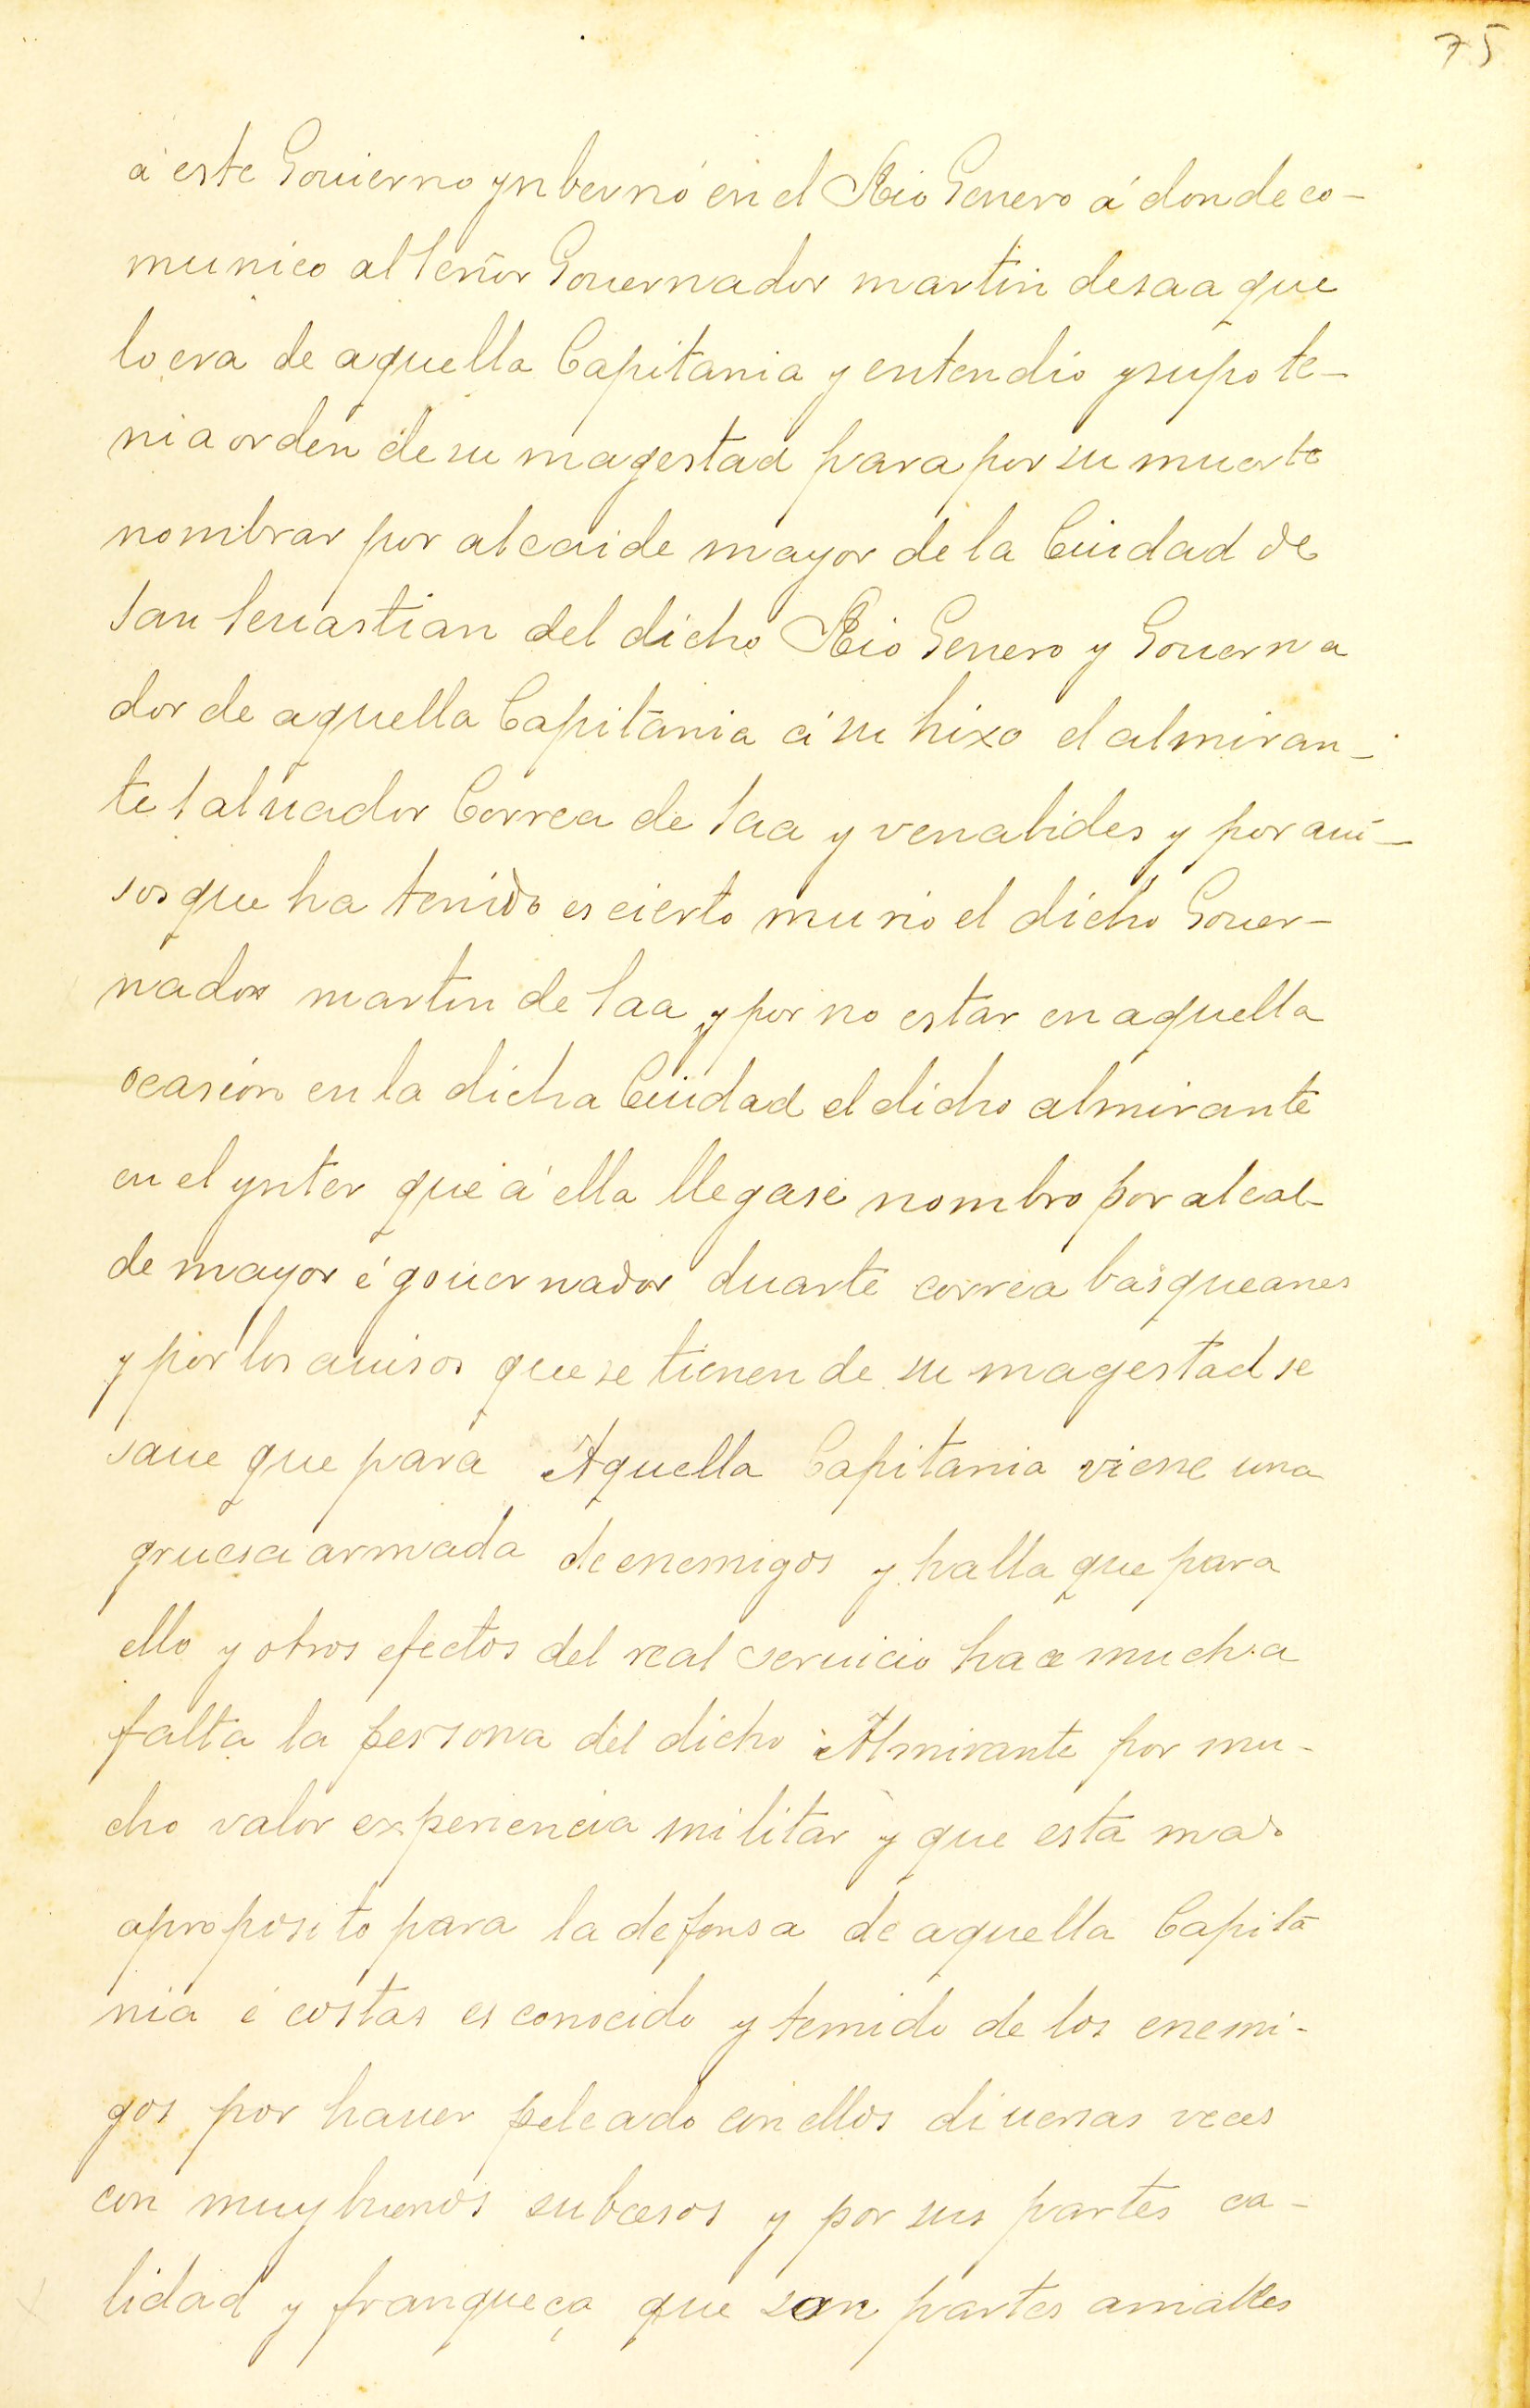 75
á este Gouierno ynbernó en el Rio Genero á donde co-
munico al señor Gouernador martin desaa que
lo era de aquella Capitania y entendio y supo te-
nia orden de su magestad para por su muerte
nombrar por alcaide mayor de la Ciudad de
san seuastian del dicho Rio Genero y Gouerna
dor de aquella Capitania á su hixo el almiran-
te saluador Correa de saa y venabides y por aui-
sos que ha tenido es cierto murio el dicho Gouer-
nador martin de saa y por no estar en aquella
ocasion en la dicha Ciudad el dicho almirante
en el ynter que á ella llegase nombro por alcal-
de mayor é gouernador duarte correa basqueanes
y por los auisos que se tienen de su magestad se
saue que para Aquella Capitania viene una
gruesa armada de enemigos y halla que para
ello y otros efectos del real seruicio hace mucha
falta la persona del dicho Almirante por mu-
cho valor experiencia militar y que esta mas
aproposito para la defensa de aquella Capita
nia é costas es conocido y temido de los enemi-
gos por hauer peleado con ellos diuersas veces
con muy buenos subcesos y por sus partes ca-
lidad y franqueça que son partes amables